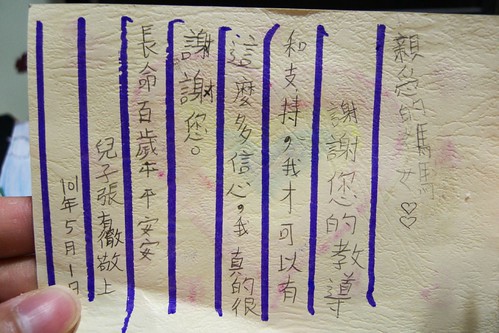 親愛的媽媽♡♡
謝謝您的教導
和支持，我才可以有
這麼多信心。我真的很
謝謝您。
長命百歲平平安安
兒子張有徹敬上
101年5月1日